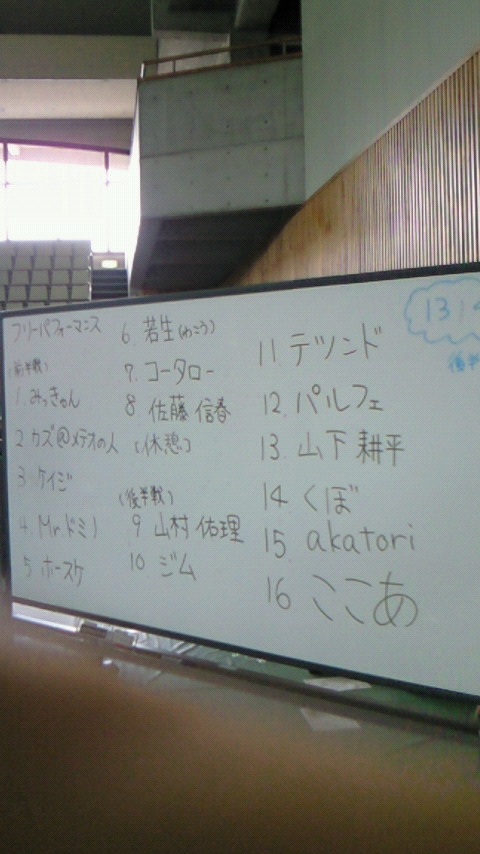 フリーパフォーマンス
(前半戦)
1. みっきゅん
2. カズ@メテオの人
3. ケイジ
4. Mr.ドミノ
5. ホースケ
6. 若生(わこう)
7. コータロー
8. 佐藤 信春
(休憩)
(後半戦)
9 山村 佑理
10. ジム
11 テツンド
12. パルフェ
13. 山下 耕平
14 くぼ
15 akatori
16 ここあ
13:
後半